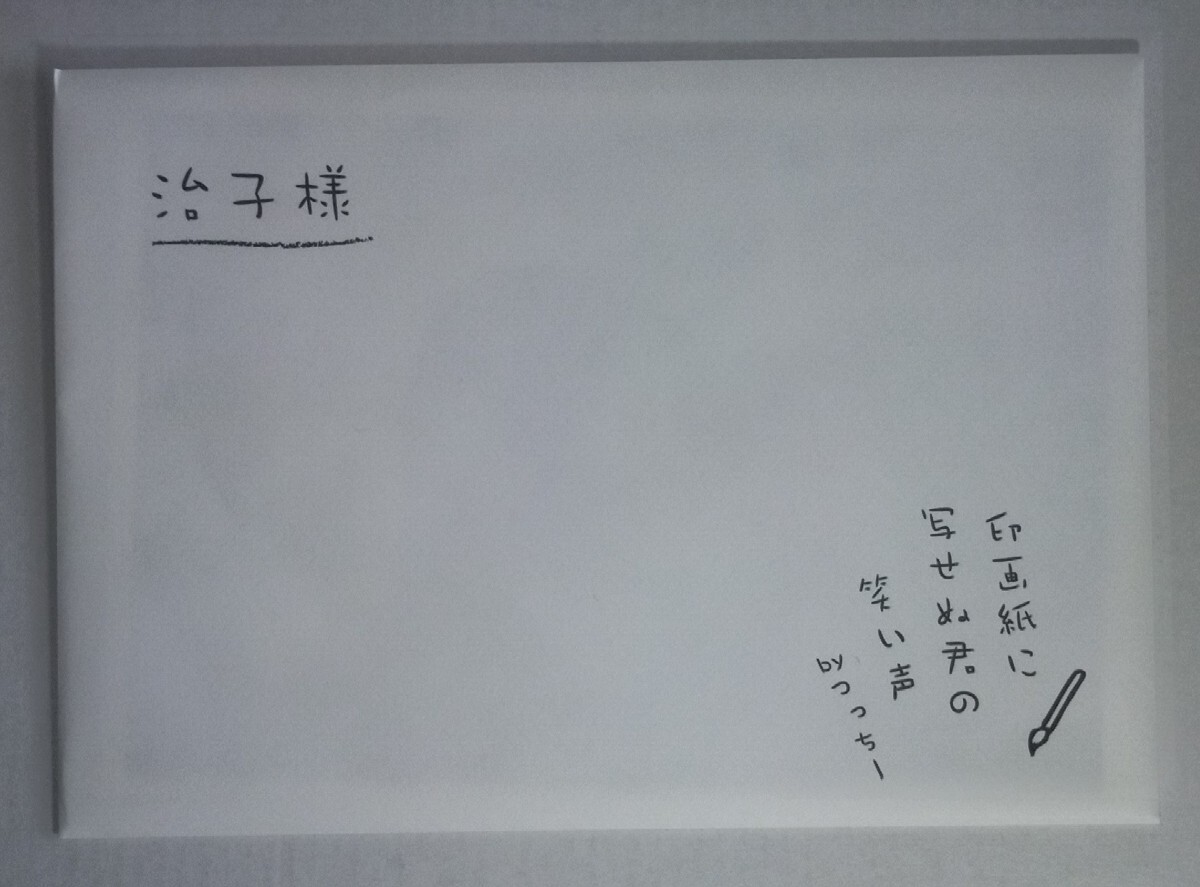 治子様
印画紙に
写せぬ君の
笑い声
byつっちー